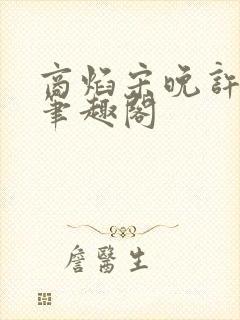 商焰宋晚許
筆趣閣
詹醫生